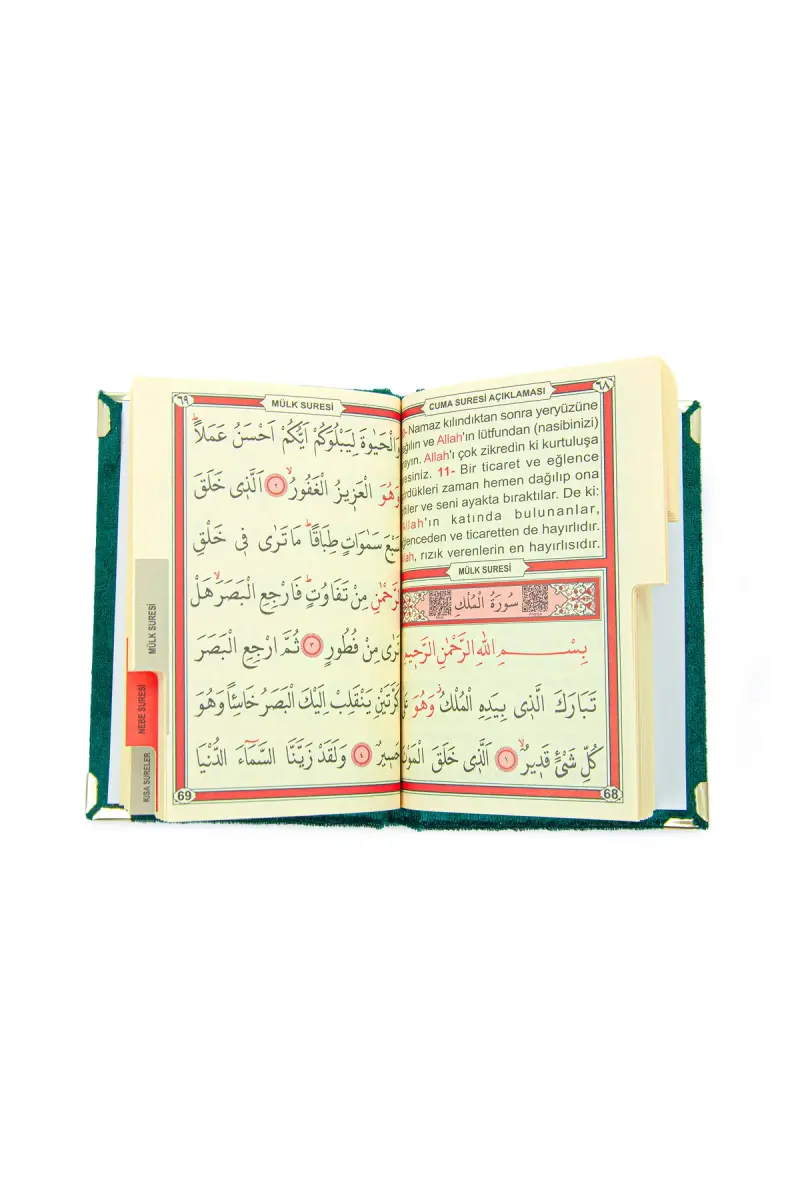 ٦٨
CUMA SURESİ AÇIKLAMASI
Namaz kılındıktan sonra yeryüzüne
ve Allah'ın lütfundan (nasibinizi)
Allah'ı çok zikredin ki kurtuluşa
11- Bir ticaret ve eğlence
zaman hemen dağılıp ona
ve seni ayakta bıraktılar. De ki:
Allah'ın katında bulunanlar,
ve ticaretten de hayırlıdır.
rızık verenlerin en hayırlısıdır.
MÜLK SURESİ
سُورَةُ الْمُلْكِ
بِسْمِ اللهِ الرَّحْمٰنِ الرَّحٖيمِ
تَبَارَكَ الَّذٖى بِيَدِهِ الْمُلْكُ وَهُوَ
كُلِّ شَىْءٍ قَدٖيرٌ ١ اَلَّذٖى خَلَقَ
68
٦٩
MÜLK SURESİ
وَالْحَيٰوةَ لِيَبْلُوَكُمْ اَيُّكُمْ اَحْسَنُ عَمَلاً
وَهُوَ الْعَزٖيزُ الْغَفُورُ ٢ اَلَّذٖى خَلَقَ
سَبْعَ سَمٰوَاتٍ طِبَاقاً مَا تَرٰى فٖى خَلْقِ
الرَّحْمٰنِ مِنْ تَفَاوُتٍ فَارْجِعِ الْبَصَرَ هَلْ
تَرٰى مِنْ فُطُورٍ ٣ ثُمَّ ارْجِعِ الْبَصَرَ
كَرَّتَيْنِ يَنْقَلِبْ اِلَيْكَ الْبَصَرُ خَاسِئاً وَهُوَ
حَسٖيرٌ ٤ وَلَقَدْ زَيَّنَّا السَّمَاءَ الدُّنْيَا
69
MÜLK SURESİ
NEBE SURESİ
KISA SURELER